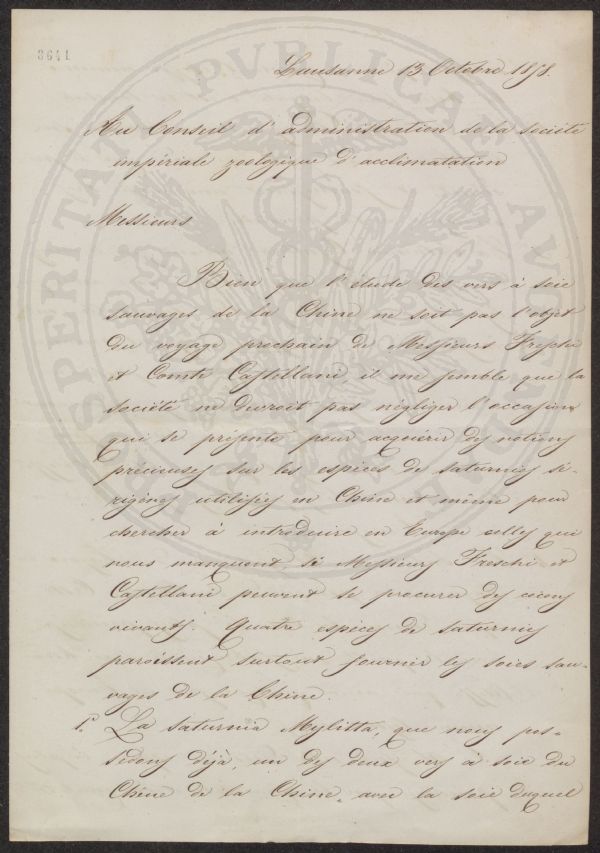 3641
Lausanne 13 Octobre 1858.
Au Conseil d'administration de la Société
impériale zoologique d'acclimatation
Messieurs
Bien que l'étude des vers à soie
sauvages de la Chine ne soit pas l'objet
du voyage prochain de Messieurs Freschi
et Comte Castellani, il me semble que la
société ne devroit pas négliger l'occasion
qui se présente pour acquérir des notions
précieuses sur les espèces de saturnies sé-
rigènes utilisées en Chine et même pour
chercher à introduire en Europe celles qui
nous manquent, si Messieurs Freschi et
Castellani peuvent se procurer des cocons
vivants. Quatre espèces de saturnies
paroissent surtout fournir les soies sau-
vages de la Chine.
1°. La saturnia Mylitta, que nous pos-
sédons déjà, un des deux vers à soie du
Chêne de la Chine, avec la soie duquel